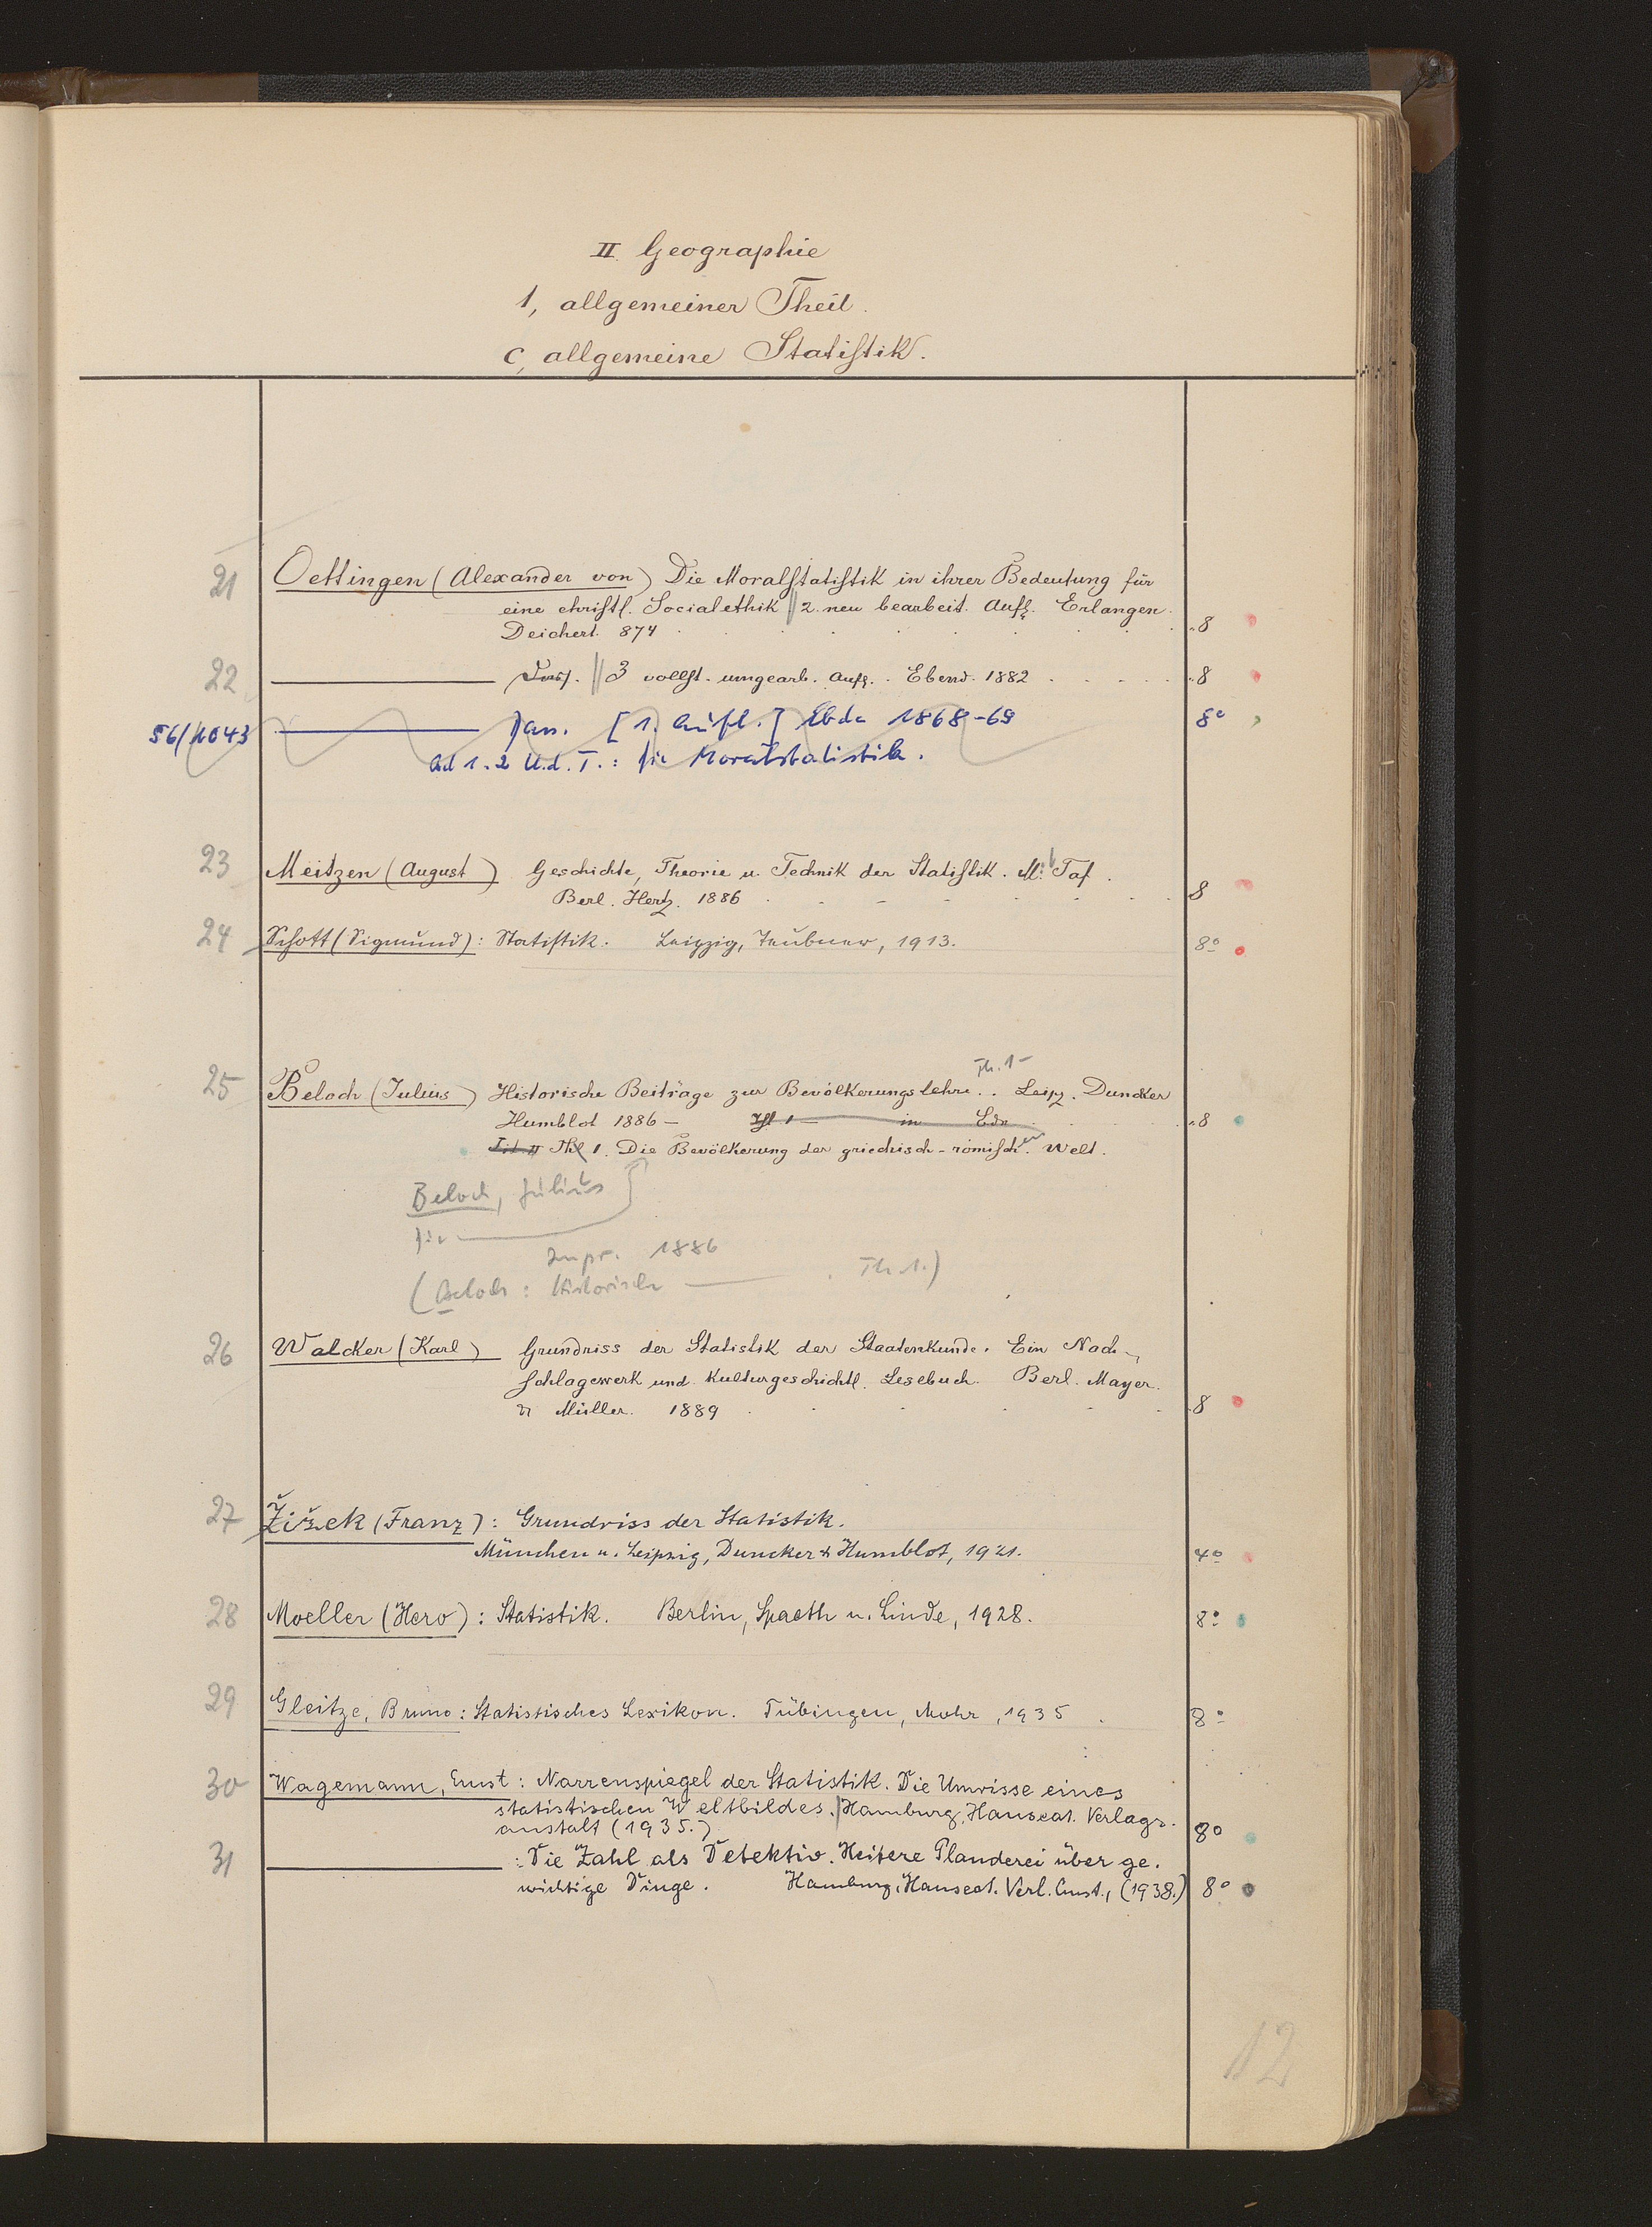 II. Geographie
1, allgemeiner Theil.
c, allgemeine Statistik.
21 Oettingen (Alexander von) Die Moralstatistik in ihrer Bedeutung für
eine christl. Socialethik || 2. neu bearbeit. Aufl. Erlangen.
Deichert. 874 8
22 Dass. || 3 vollst. umgearb. Aufl. Ebend. 1882 8
56/1043 Dass. [1. Aufl.] Ebda 1868-69 8°
Bd 1.2 U.d.T.: Die Moralstatistik.
23 Meitzen (August) Geschichte, Theorie u. Technik der Statistik. Mit Taf.
Berl. Hertz. 1886 8
24 Schott (Sigmund): Statistik. Leipzig, Teubner, 1913. 8°
Th. 1-
25 Beloch (Julius) Historische Beiträge zur Bevölkerungslehre.. Leipz. Duncker
Humblot 1886 - Thl 1 - in 8
Thl 1. Die Bevölkerung der griechisch-römischen Welt.
Beloch, Julius
Die
Lpz. 1886
(Beloch: Historische . Th. 1.)
26 Walcker (Karl) Grundriss der Statistik der Staatenkunde. Ein Nach-
schlagewerk und Kulturgeschichtl. Lesebuch. Berl. Mayer.
& Müller. 1889 8
27 Žižek (Franz): Grundriss der Statistik.
München u. Leipzig, Duncker & Humblot, 1921. 4°
28 Moeller (Hero): Statistik. Berlin, Spaeth u. Linde, 1928. 8°
29 Gleitze, Bruno: Statistisches Lexikon. Tübingen, Mohr, 1935 8°
30 Wagemann, Ernst: Narrenspiegel der Statistik. Die Umrisse eines
statistischen Weltbildes. Hamburg, Hanseat. Verlags.
anstalt (1935.) 8°
31 : Die Zahl als Detektiv. Heitere Plauderei über ge.
wichtige Dinge. Hamburg, Hanseat. Verl. Anst., (1938.) 8°
12